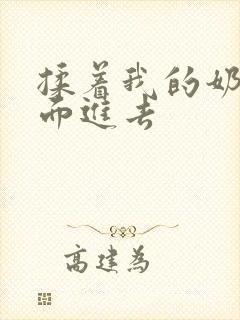 揉着我的奶
而進去
高建為